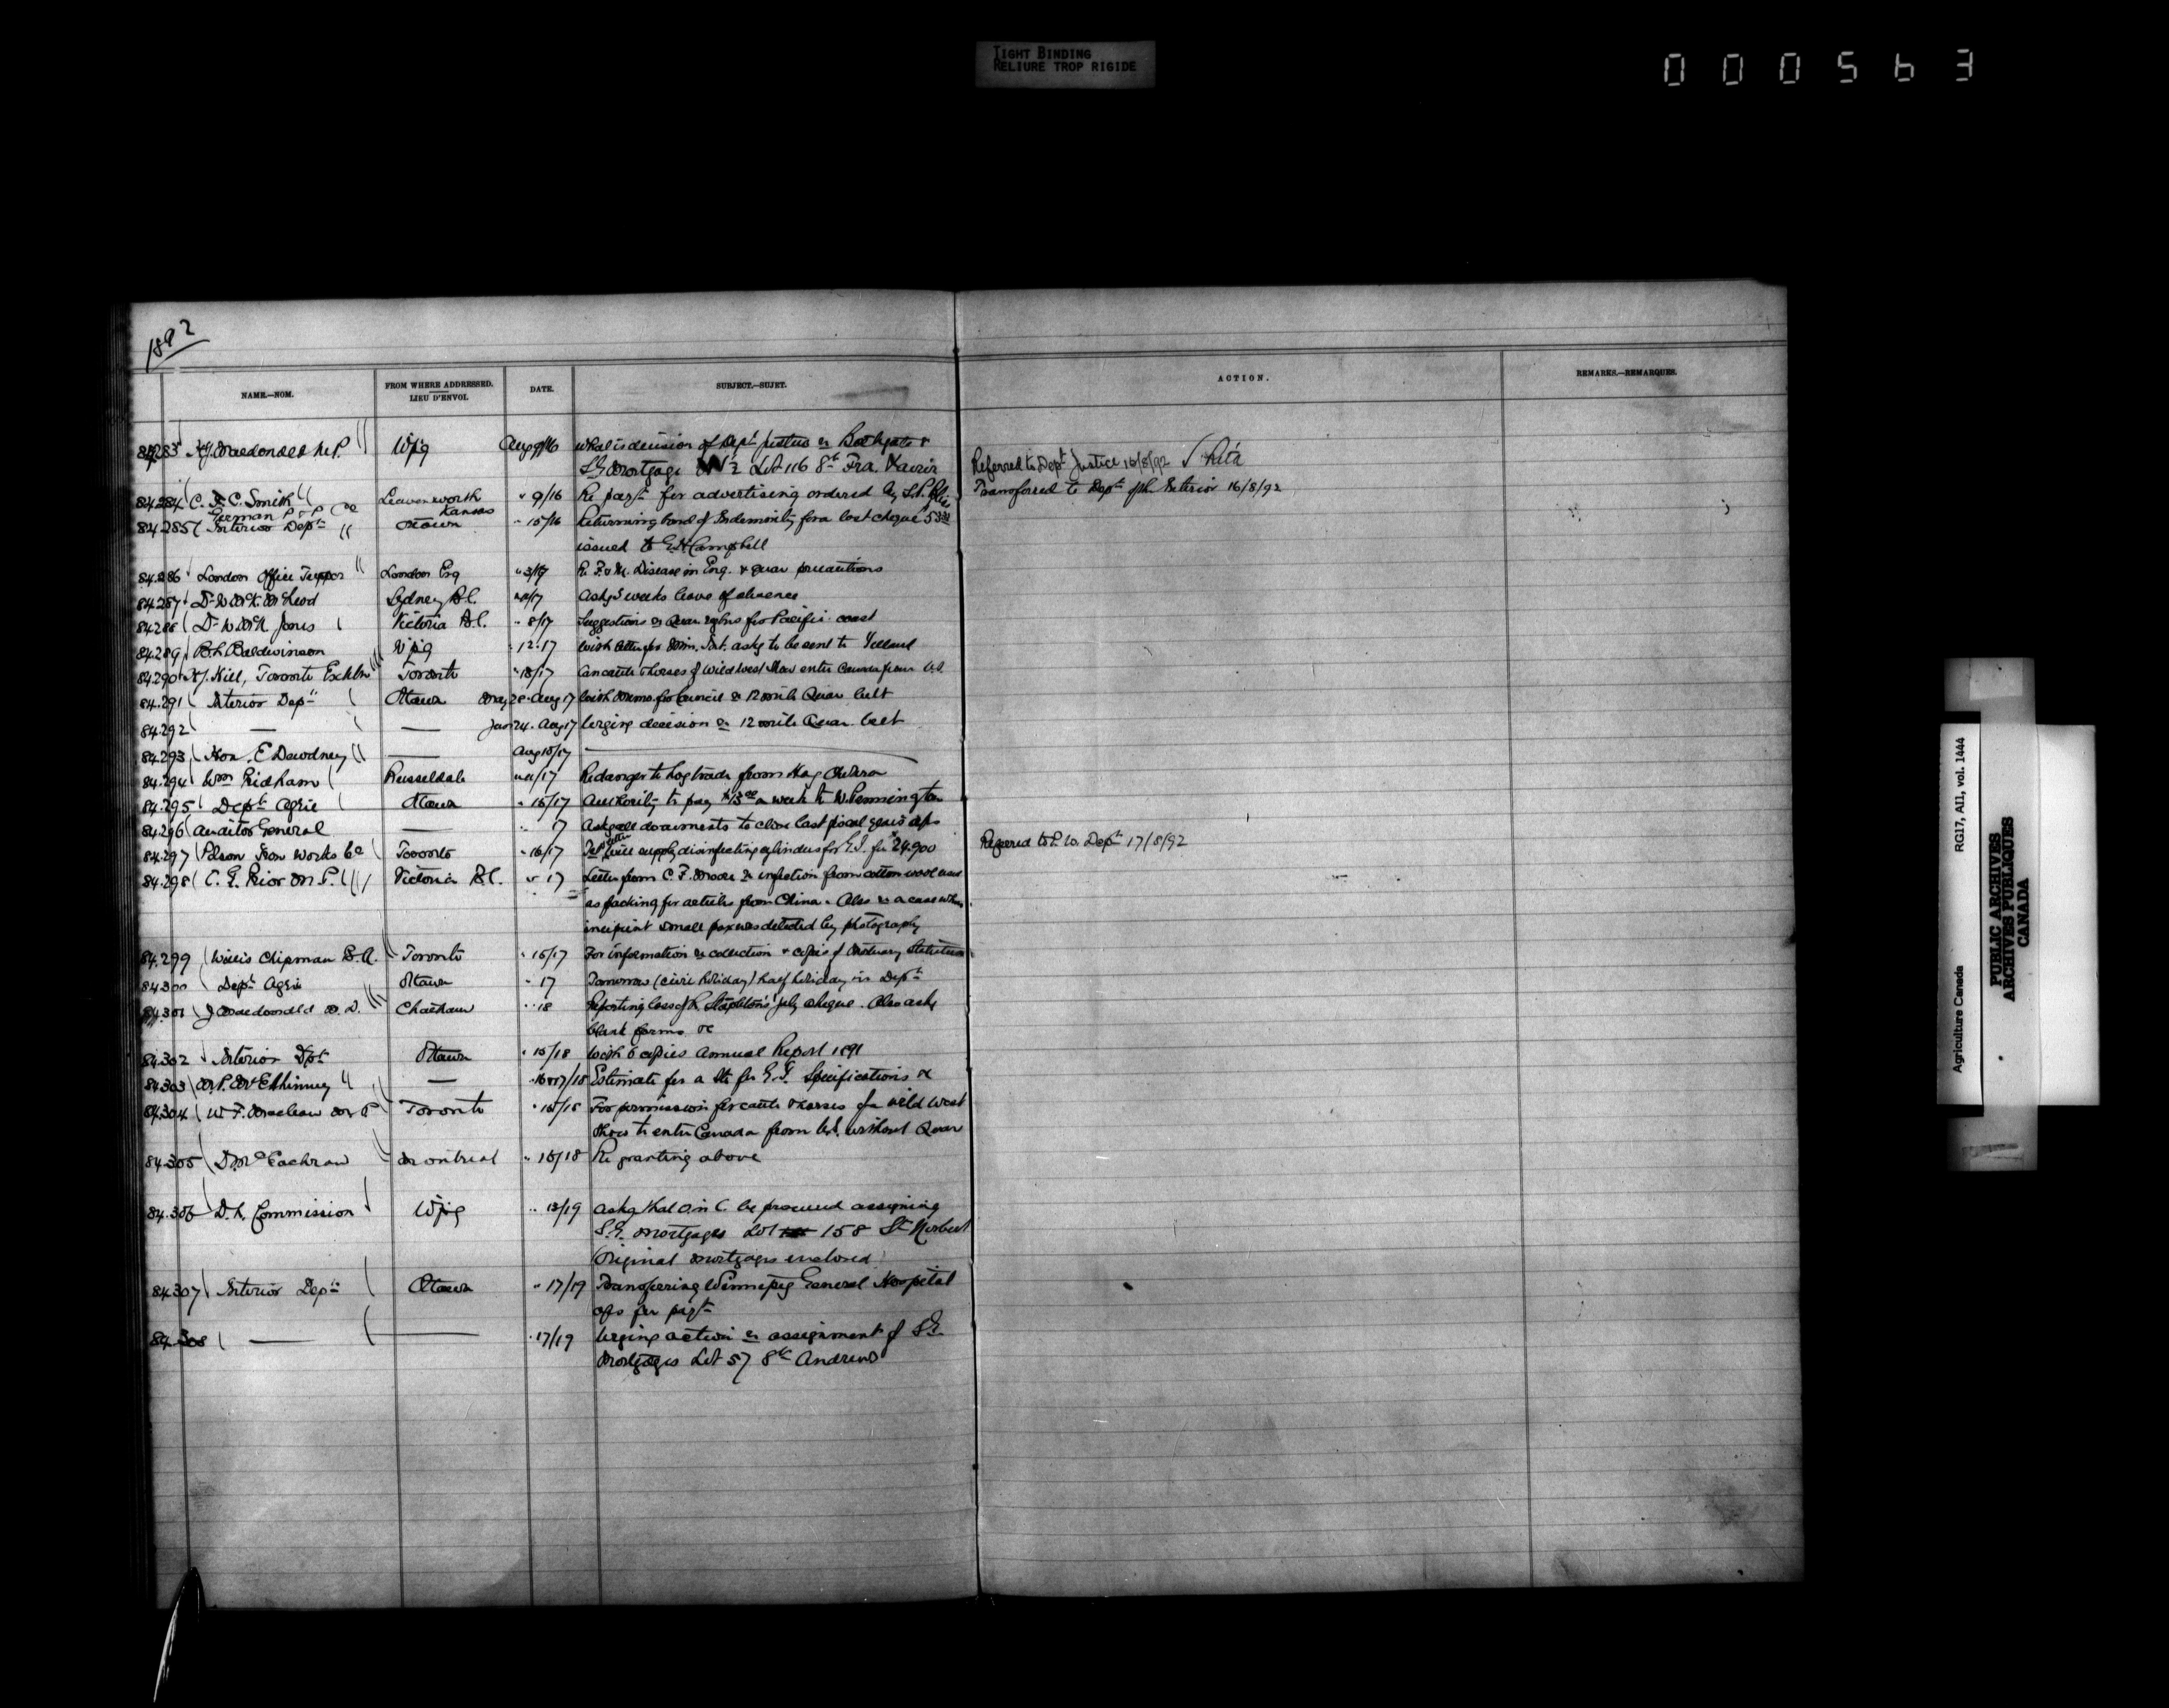 TIGHT BINDING
RELIURE TROP RIGIDE
000563
1892
NAME.—NOM.
FROM WHERE ADDRESSED.
LIEU D'ENVOI.
DATE.
SUBJECT.—SUJET.
ACTION.
REMARKS.—REMARQUES.
84283 H.J. Macdonald M.P. Wpg Aug 9/16 What is decision of Dept Justice re Bathgate &
S.G. Mortgage Lot 116 St Fra. Xavier Referred to Dept Justice 16/8/92
84.284 C. F. C. Smith Leavenworth " 9/16 Re payt for advertising ordered by Transferred to Dept of the Interior 16/8/92
German P & P Co Kansas
84.285 Interior Dept Ottawa " 15/16 Returning bond of Indemnity for a lost cheque
issued to G.H. Campbell
84.286 London Office Tupper London Eng " 3/17 Re F. & M. Disease in Eng. & quar precautions
84.287 Dr W. McK. McLeod Sydney " /17 Asks 3 weeks leave of absence
84.288 Dr W. McN Jones Victoria B.C. " 8/17 Suggestions re Quar regtns for Pacific coast
84.289 B.L. Baldwinson Wpg " 12/17 With letter for Min. Int. asks to be sent to
84.290 H.J. Hill, Toronto Exhbn Toronto " 18/17 Can cattle & horses of Wild West Show enter Canada from U.S.
84.291 Interior Dept Ottawa May 28. Aug 17 With memo for Council re 12 mile Quar belt
84.292 — — Jan 24. Aug 17 Urging decision re 12 mile Quar belt
84.293 Hon. E Dewdney — Aug 15/17 —
84.294 Wm Pridham Russeldale " 11/17 Re danger to hog trade from Hog Cholera
84.295 Dept Agric Ottawa " 15/17 Authority to pay a week to W. Pennington
84.296 Auditor General — " 17 Asks all documents to close last fiscal year's a/cs
84.297 Polson Iron Works Co Toronto " 16/17 will supply disinfecting cylinders for G.I. for $24.900 Referred to P. W. Dept 17/8/92
84.298 E. G. Prior M.P. Victoria B.C. " 17 Letter from C. F. Moore re infection from cotton wool used
as packing for articles from China. Also re a case where
incipient small pox was detected by photography
84.299 Willis Chipman B.A. Toronto " 15/17 For information re collection & copies of Mortuary Statistics
84.300 Dept Agric Ottawa " 17 Tomorrow (civic holiday) half holiday in Dept
84.301 J Macdonald M.D. Chatham " 18 Reporting loss of R. Stapleton's July cheque. Also asks
blank forms &c
84.302 Interior Dpt Ottawa " 15/18 With 6 copies Annual Report 1891
84.303 — " 16 & 17/18 Estimate for a for G.I. Specifications &c
84.304 W. F. Maclean M.P. Toronto " 15/18 For permission for cattle & horses of a wild West
Show to enter Canada from U.S. without Quar
84.305 D. McEachran Montreal " 16/18 Re granting above
84.306 D. L. Commission Wpg " 13/19 Asks that O. in C. be procured assigning
S.G. Mortgages Lot 158 St Norbert
(Original mortgages enclosed)
84.307 Interior Dept Ottawa " 17/19 Transferring Winnipeg General Hospital
a/cs for payt
84.308 — — " 17/19 Urging action re assignment of S.G.
Mortgages Lot 57 St Andrews
Agriculture Canada RG17, AI1, vol. 1444
PUBLIC ARCHIVES
ARCHIVES PUBLIQUES
CANADA